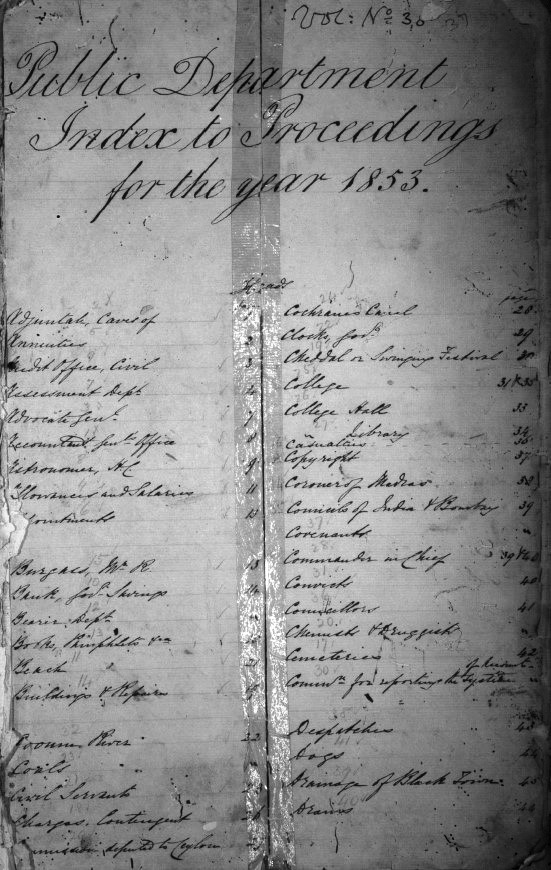 Vol: No 30
Public Department
Index to Proceedings
for the year 1853.
Heads
pages
Adjuntah, Caves of 1
Annuities 2
Audit Office, Civil 3
Assessment Dept 4
Advocate Genl. 7
Accountant Genl's Office 8
Astronomer, HC 9
Allowances and Salaries 11
Appointments 13
Burgass, Mr R
Bank, Govt Savings
Bearer Dept
Books, Pamphlets &ca
Beach 21
Buildings & Repairs
Cooum River 22
Coals "
Civil Servants
Charges, Contingent
Commission deputed to Ceylon
Cochranes Canal 28
Clocks, Govt 29
Cheddal or Swinging Festival 30
College 31 & 35
College Hall 33
" Library 34
Casualties
Copyright 37
Coroner of Madras 38
Councils of India & Bombay 39
Covenants "
Commander in Chief 39 & 40
Convicts 40
Councillors 41
Chemists & Druggists "
Cemeteries 42
Commn. for reporting the System of
Despatches 43
Dogs 44
Drainage of Black Town 45
Drains